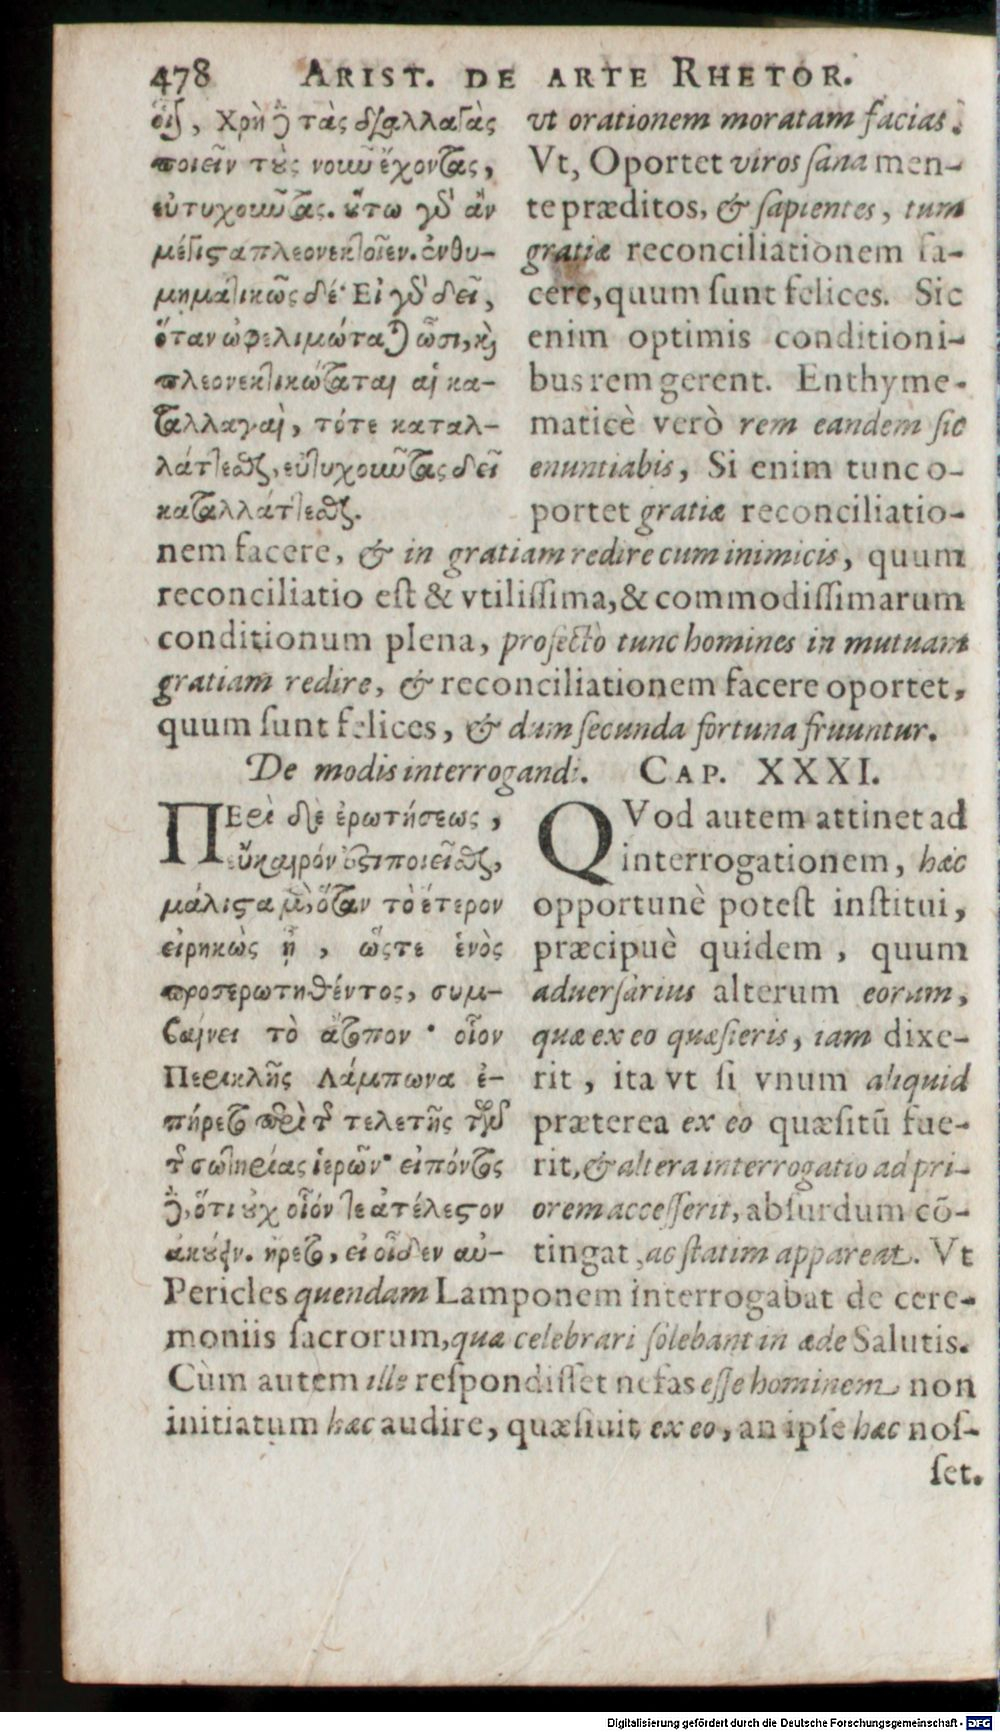 478 ARIST. DE ARTE RHETOR.
οἷον, Χρὴ δὲ τὰς διαλλαγὰς
ποιεῖν τοὺς νουῦ ἔχοντας,
εὐτυχουῦτας. οὕτω γὰρ ἂν
μέγιστα πλεονεκτοῖεν. ἐνθυ-
μηματικῶς δέ· Εἰ γὰρ δεῖ,
ὅταν ὠφελιμώταται ὦσι, καὶ
πλεονεκτικώταται αἱ κα-
ταλλαγαὶ, τότε καταλ-
λάττεσθαι, εὐτυχουῦτας δεῖ
καταλλάττεσθαι.
vt orationem moratam facias.
Vt, Oportet viros sana men-
te præditos, & sapientes, tum
gratiæ reconciliationem fa-
cere, quum sunt felices. Sic
enim optimis conditioni-
bus rem gerent. Enthyme-
maticè verò rem eandem sic
enuntiabis, Si enim tunc o-
portet gratiæ reconciliatio-
nem facere, & in gratiam redire cum inimicis, quum
reconciliatio est & vtilissima, & commodissimarum
conditionum plena, profectò tunc homines in mutuam
gratiam redire, & reconciliationem facere oportet,
quum sunt felices, & dum secunda fortuna fruuntur.
De modis interrogandi. CAP. XXXI.
ΠΕρὶ δὲ ἐρωτήσεως,
εὔκαιρόν ἐστι ποιεῖσθαι,
μάλιστα μὲν, ὅταν τὸ ἕτερον
εἰρηκὼς ᾖ, ὥστε ἑνὸς
προσερωτηθέντος, συμ-
βαίνει τὸ ἄτοπον· οἷον
Περικλῆς Λάμπωνα ἐ-
πήρετο περὶ τῆς τελετῆς τῶν
τῆς σωτηρίας ἱερῶν· εἰπόντος
δὲ, ὅτι οὐχ οἷόν τε ἀτέλεστον
ἀκούειν. ἤρετο, εἰ οἶδεν αὐ-
QVod autem attinet ad
interrogationem, hæc
opportunè potest institui,
præcipuè quidem, quum
aduersarius alterum eorum,
quæ ex eo quæsieris, iam dixe-
rit, ita vt si vnum aliquid
præterea ex eo quæsitū fue-
rit, & altera interrogatio ad pri-
orem accesserit, absurdum cō-
tingat, ac statim appareat. Vt
Pericles quendam Lamponem interrogabat de cere-
moniis sacrorum, quæ celebrari solebant in æde Salutis.
Cùm autem ille respondisset nefas esse hominem non
initiatum hæc audire, quæsiuit ex eo, an ipse hæc nos-
set.
Digitalisierung gefördert durch die Deutsche Forschungsgemeinschaft - DFG